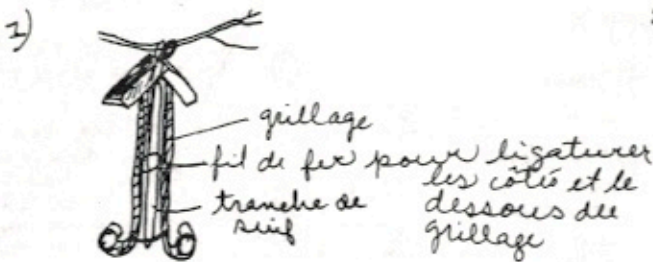 1)
grillage
fil de fer pour ligaturer
les côtés et le
dessous du
grillage
tranche de
suif